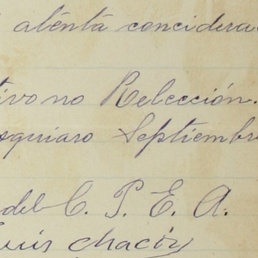 atenta conciderac
tivo no Relección.
oquiaro Septiembre
del C. P. E. A.
Luis Chacón